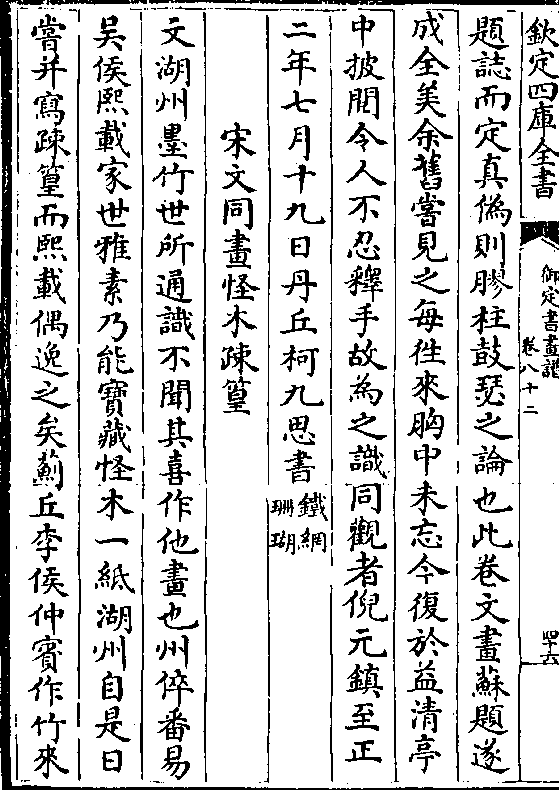 欽定四庫全書
御定書畫譜
卷八十二
四十六
題誌而定真僞則膠柱鼓瑟之論也此卷文畫蘇題遂
成全美余舊嘗見之每徃來胸中未忘今復於益清亭
中披閲令人不忍釋手故為之識同觀者倪元鎮至正
二年七月十九日丹丘柯九思書
鐵網
珊瑚
宋文同畫怪木疎篁
文湖州墨竹世所通識不聞其喜作他畫也州倅番昜
吴侯熙載家世雅素乃能寳藏怪木一紙湖州自是日
嘗并寫疎篁而熙載偶逸之矣薊丘李侯仲賔作竹來